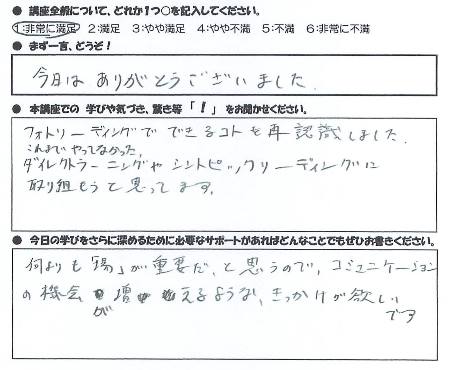 ● 講座全般について、どれか1つ○を記入してください。
1:非常に満足 2:満足 3:やや満足 4:やや不満 5:不満 6:非常に不満
● まず一言、どうぞ!
今日は ありがとうございました.
● 本講座での 学びや気づき、驚き等「!」をお聞かせください。
フォトリーディングで できるコトを再認識しました.
これまでやってなかった,
ダイレクトラーニングや シントピックリーディングに
取り組もうと思ってます.
● 今日の学びをさらに深めるために必要なサポートがあればどんなことでもぜひお書きください。
何よりも「場」が重要だ、と思うので、コミュニケーション
の機会が増えるような、きっかけが欲しい
です